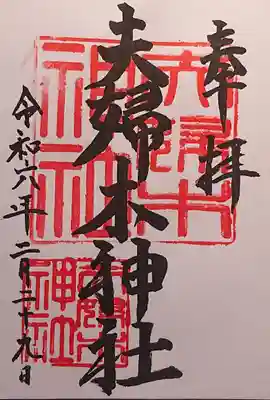 奉拝
夫婦木神社
令和六年二月二十九日
夫婦木神社